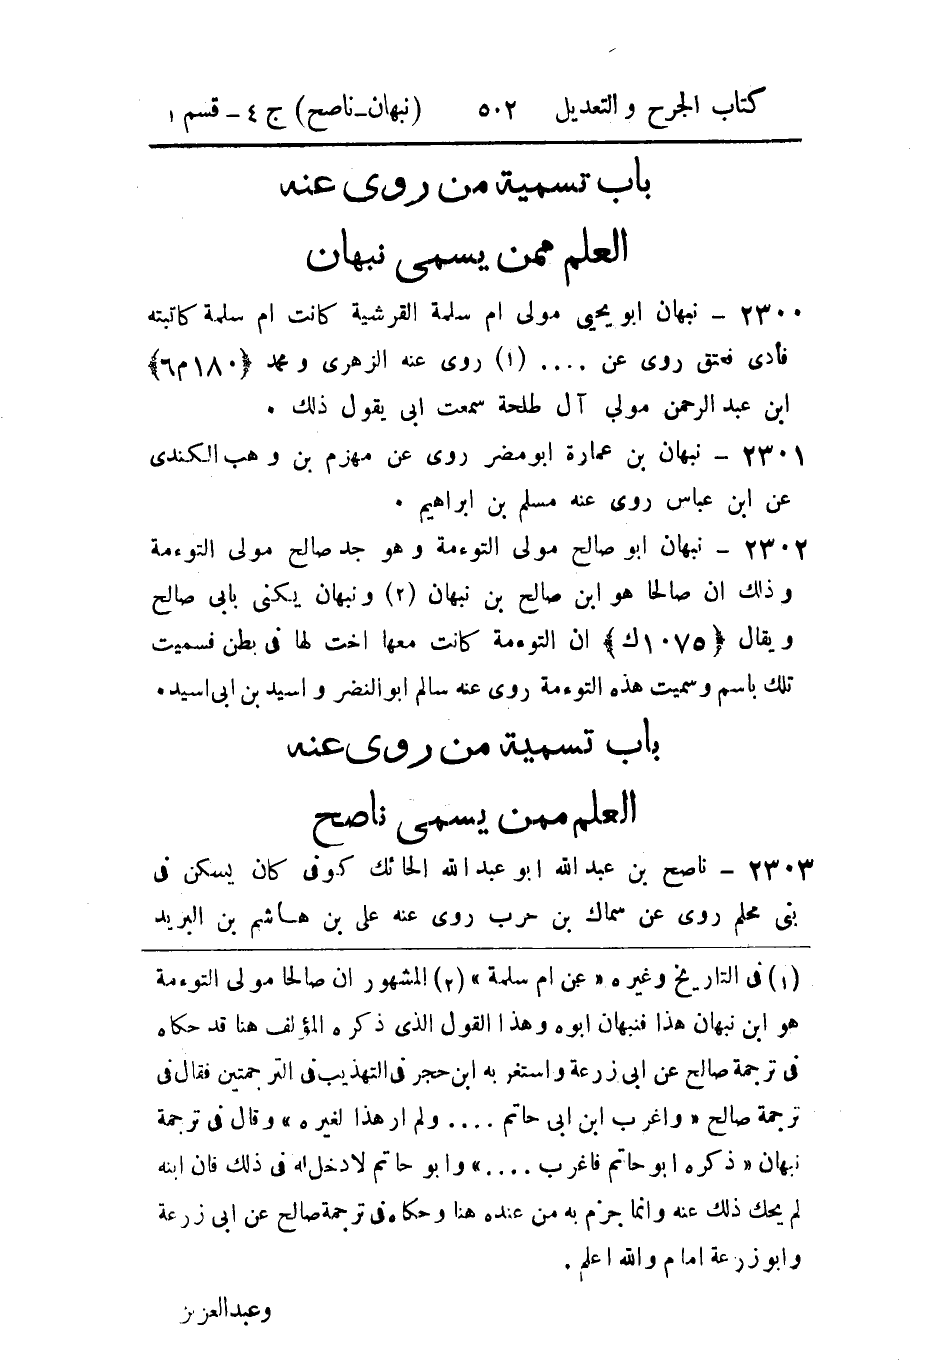 كتاب الجرح والتعديل ٥٠٢ (نبهان-ناصح) ج ٤ - قسم ١
باب تسمية من روى عنه
العلم ممن يسمى نبهان
٢٣٠٠ - نبهان ابو يحيى مولى ام سلمة القرشية كانت ام سلمة كاتبته
فأدى فعتق روى عن .... (١) روى عنه الزهرى ومحمد ﴿١٨٠م٦﴾
ابن عبد الرحمن مولى آل طلحة سمعت ابى يقول ذلك .
٢٣٠١ - نبهان بن عمارة ابومضر روى عن مهزم بن وهب الكندى
عن ابن عباس روى عنه مسلم بن ابراهيم .
٢٣٠٢ - نبهان ابو صالح مولى التوءمة وهو جد صالح مولى التوءمة
وذلك ان صالحا هو ابن صالح بن نبهان (٢) ونبهان يكنى بابى صالح
ويقال ﴿١٠٧٥ك﴾ ان التوءمة كانت معها اخت لها فى بطن فسميت
تلك باسم وسميت هذه التوءمة روى عنه سالم ابو النضر واسيد بن ابى اسيد.
باب تسمية من روى عنه
العلم ممن يسمى ناصح
٢٣٠٣ - ناصح بن عبد الله ابو عبد الله الحائك كوفى كان يسكن فى
بنى محلم روى عن سماك بن حرب روى عنه على بن هاشم بن البريد
(١) فى التاريخ وغيره «عن ام سلمة» (٢) المشهور ان صالحا مولى التوءمة
هو ابن نبهان هذا فنبهان ابوه وهذا القول الذى ذكره المؤلف هنا قد حكاه
فى ترجمة صالح عن ابى زرعة واستغربه ابن حجر فى التهذيب فى الترجمتين فقال فى
ترجمة صالح «واغرب ابن ابى حاتم .... ولم ار هذا لغيره» وقال فى ترجمة
نبهان «ذكره ابو حاتم فاغرب ....» وابو حاتم لادخل له فى ذلك فان ابنه
لم يحك ذلك عنه وانما جزم به من عنده هنا وحكاه فى ترجمة صالح عن ابى زرعة
وابو زرعة امام والله اعلم .
وعبد العزيز